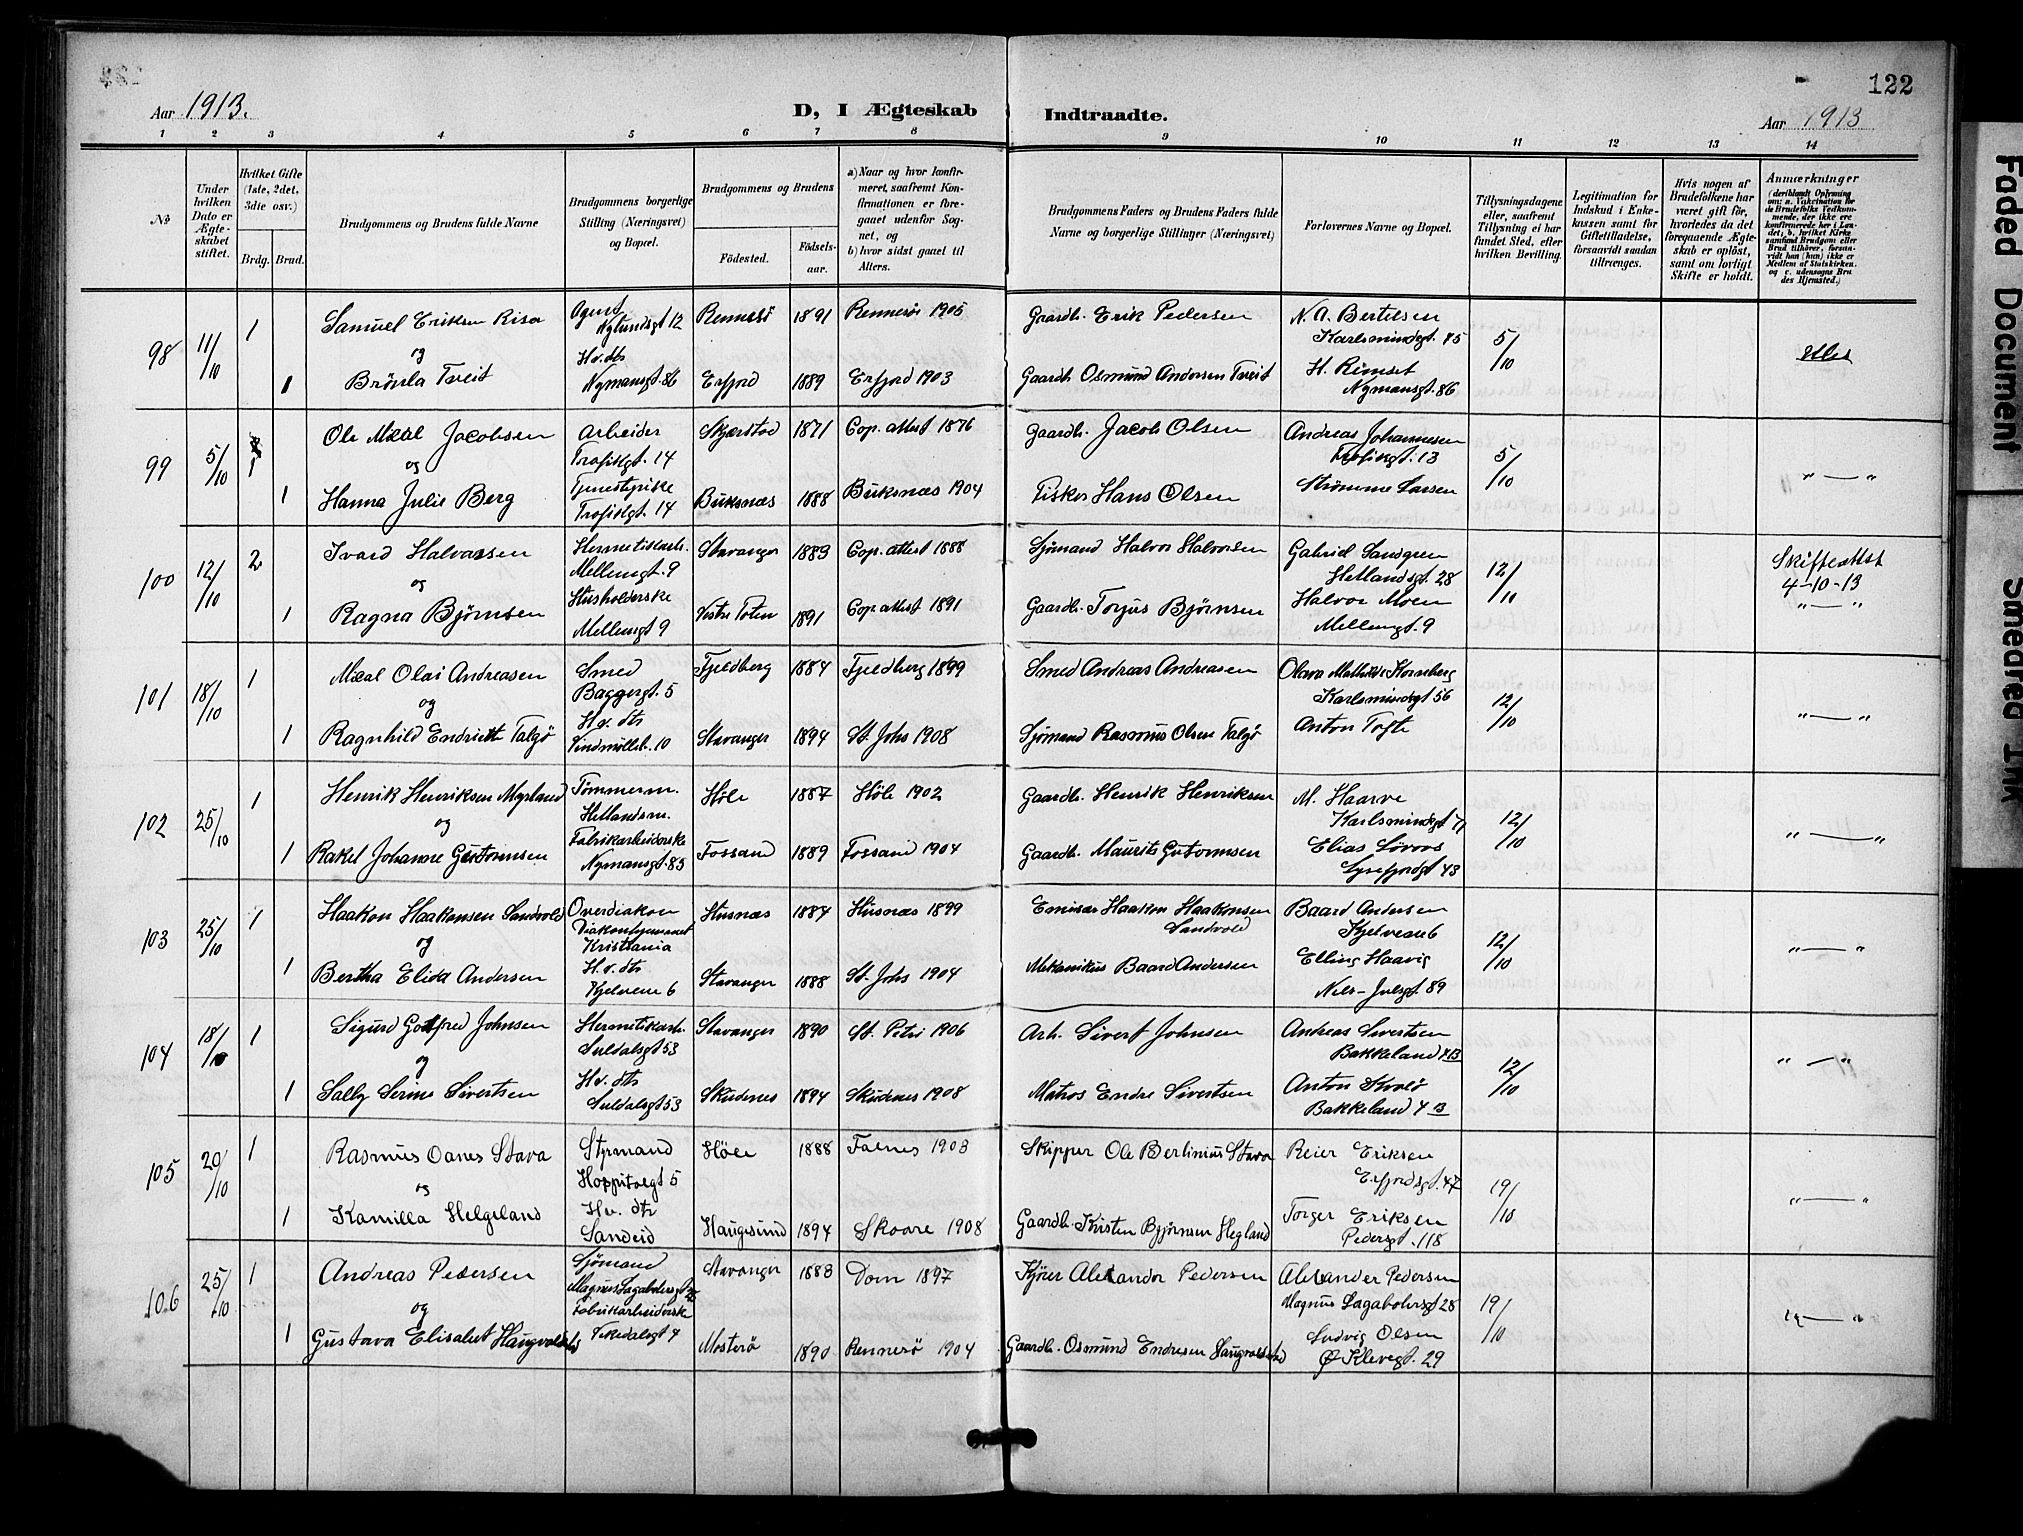 122
Aar 1913.
D, I Ægteskab Indtraadte.
Aar 1913
1 2 3 4 5 6 7 8 9 10 11 12 13 14
No
Under hvilken Dato er Ægteskabet stiftet.
Hvilket Gifte (1ste, 2det, 3die osv.)
Brdg. Brud.
Brudgommens og Brudens fulde Navne
Brudgommens borgerlige Stilling (Næringsvei) og Bopæl.
Brudgommens og Brudens
Födested.
Födselsaar.
a) Naar og hvor konfirmeret, saafremt Konfirmationen er foregaaet udenfor Sognet, og
b) hvor sidst gaaet til Alters.
Brudgommens Faders og Brudens Faders fulde Navne og borgerlige Stillinger (Næringsvei)
Forlovernes Navne og Bopæl.
Tillysningsdagene eller, saafremt Tillysning ei har fundet Sted, efter hvilken Bevilling.
Legitimation for Indskud i Enkekassen samt for Giftetilladelse, forsaavidt saadan tiltrænges.
Hvis nogen af Brudefolkene har været gift før, hvorledes da det foregaaende Ægteskab er oplöst, samt om lovligt Skifte er holdt.
Anmærkninger
98 11/10 1 Samuel Eriksen Risa Agent Nylundsgt 12 Rennesö 1891 Rennesö 1905 Gaardb. Erik Pedersen N. A. Bertelsen Karlsmindegt. 75 5/10
og
1 Brönla Tveit Hv. dtr Nymansgt. 86 Erfjord 1889 Erfjord 1903 Gaardb. Osmund Andersen Tveit H. Rimset Nymansgt. 86
99 5/10 1 Ole Mikal Jacobsen Arbeider 14 Skjerstad 1871 Cop. attest 1876 Gaardb. Jacob Olsen Andreas Johannesen 13 5/10 " — "
og
1 Hanna Julie Berg Tjenestepike 14 Buksnæs 1888 Buksnæs 1904 Fisker Hans Olsen Strömme Larsen
100 12/10 2 Ivard Halvorsen Hermetikarb. Mellemgt. 9 Stavanger 1883 Cop. attest 1888 Sjömand Halvor Halvorsen Gabriel Sandgren Hetlandsgt 28 12/11 Skifteattst 4-10-13
og
1 Ragna Bjørnsen Husholderske Mellemgt 9 Vestre Toten 1891 Cop attest 1891 Gaardb. Torjus Bjørnsen Halvor Moen Mellemgt. 9 " — "
101 18/10 1 Mikal Olai Andreasen Smed Baggergt. 5 Fjeldberg 1884 Fjeldberg 1899 Smed Andreas Andreasen Karlsmindegt 56 12/10 " — "
og
1 Ragnhild Endrictt Talgö Hv. dtr Vindmölleb. 10 Stavanger 1894 St. Johs 1908 Sjömand Rasmus Olsen Talgö Anton Tofte
102 25/10 1 Henrik Henriksen Myrland Tömmerm. Hetlandsm. Höle 1887 Höle 1902 Gaardb. Henrik Henriksen M. Haarve Karlsmindegt 71 12/10 " — "
og
1 Rakel Johanne Guttormsen Fabrikarbeiderske Nymansgt. 83 Fossand 1889 Fossand 1904 Gaardb. Maurits Gutormsen Elias Lövoos Lysefjordgt 43
103 25/10 1 Haakon Haakonsen Sandvold Overdiakon Diakonhjemmet Kristiania Husnæs 1884 Husnæs 1899 Emisær Haakon Haakonsen Sandvold Baard Andersen Kjelvene 6 12/10 " — "
og
1 Bertha Elida Andersen Hv. dtr Kjelvene 6 Stavanger 1888 St. Johs 1904 Mekanikus Baard Andersen Elling Haavig Nils-Julsgt. 89
104 18/10 1 Sigurd Gottfred Johnsen Hermetikarb. Suldalsgt 53 Stavanger 1890 St. Petri 1906 Arb. Sivert Johnsen Andreas Sivertsen Bakkeland 4 B 12/10 " — "
og
1 Sally Serine Sivertsen Hv. dtr Suldalsgt 53 Skudenes 1894 Skudenes 1908 Matros Endre Sivertsen Anton Kvalö Bakkeland 4 B
105 20/10 1 Rasmus Oanes Stava Styrmand Hospitalgt 5 Höle 1888 Falnes 1903 Skipper Ole Berlinius Stava Reier Eriksen Erfjordsgt. 47 19/10 " — "
og
1 Kamilla Helgeland Hv. dtr Sandeid Haugesund 1894 Skaare 1908 Gaardb. Kristen Bjørnsen Hegland Torger Eriksen Pedersgt. 118
106 25/10 1 Andreas Pedersen Sjömand Magnus Lagabötersgt 28 Stavanger 1883 Dom 1897 Kjörer Alexander Pedersen Alexander Pedersen Magnus Lagabötersgt 28 19/10 " — "
og
1 Gustava Elisabet Haugvaldstad Fabrikarbeiderske Vikedalsgt 4 Mosterö 1890 Rennesö 1904 Gaardb. Osmund Endresen Haugvaldstad Ludvig Olsen Ø Klevegt. 29
Faded Document
Smeared Ink